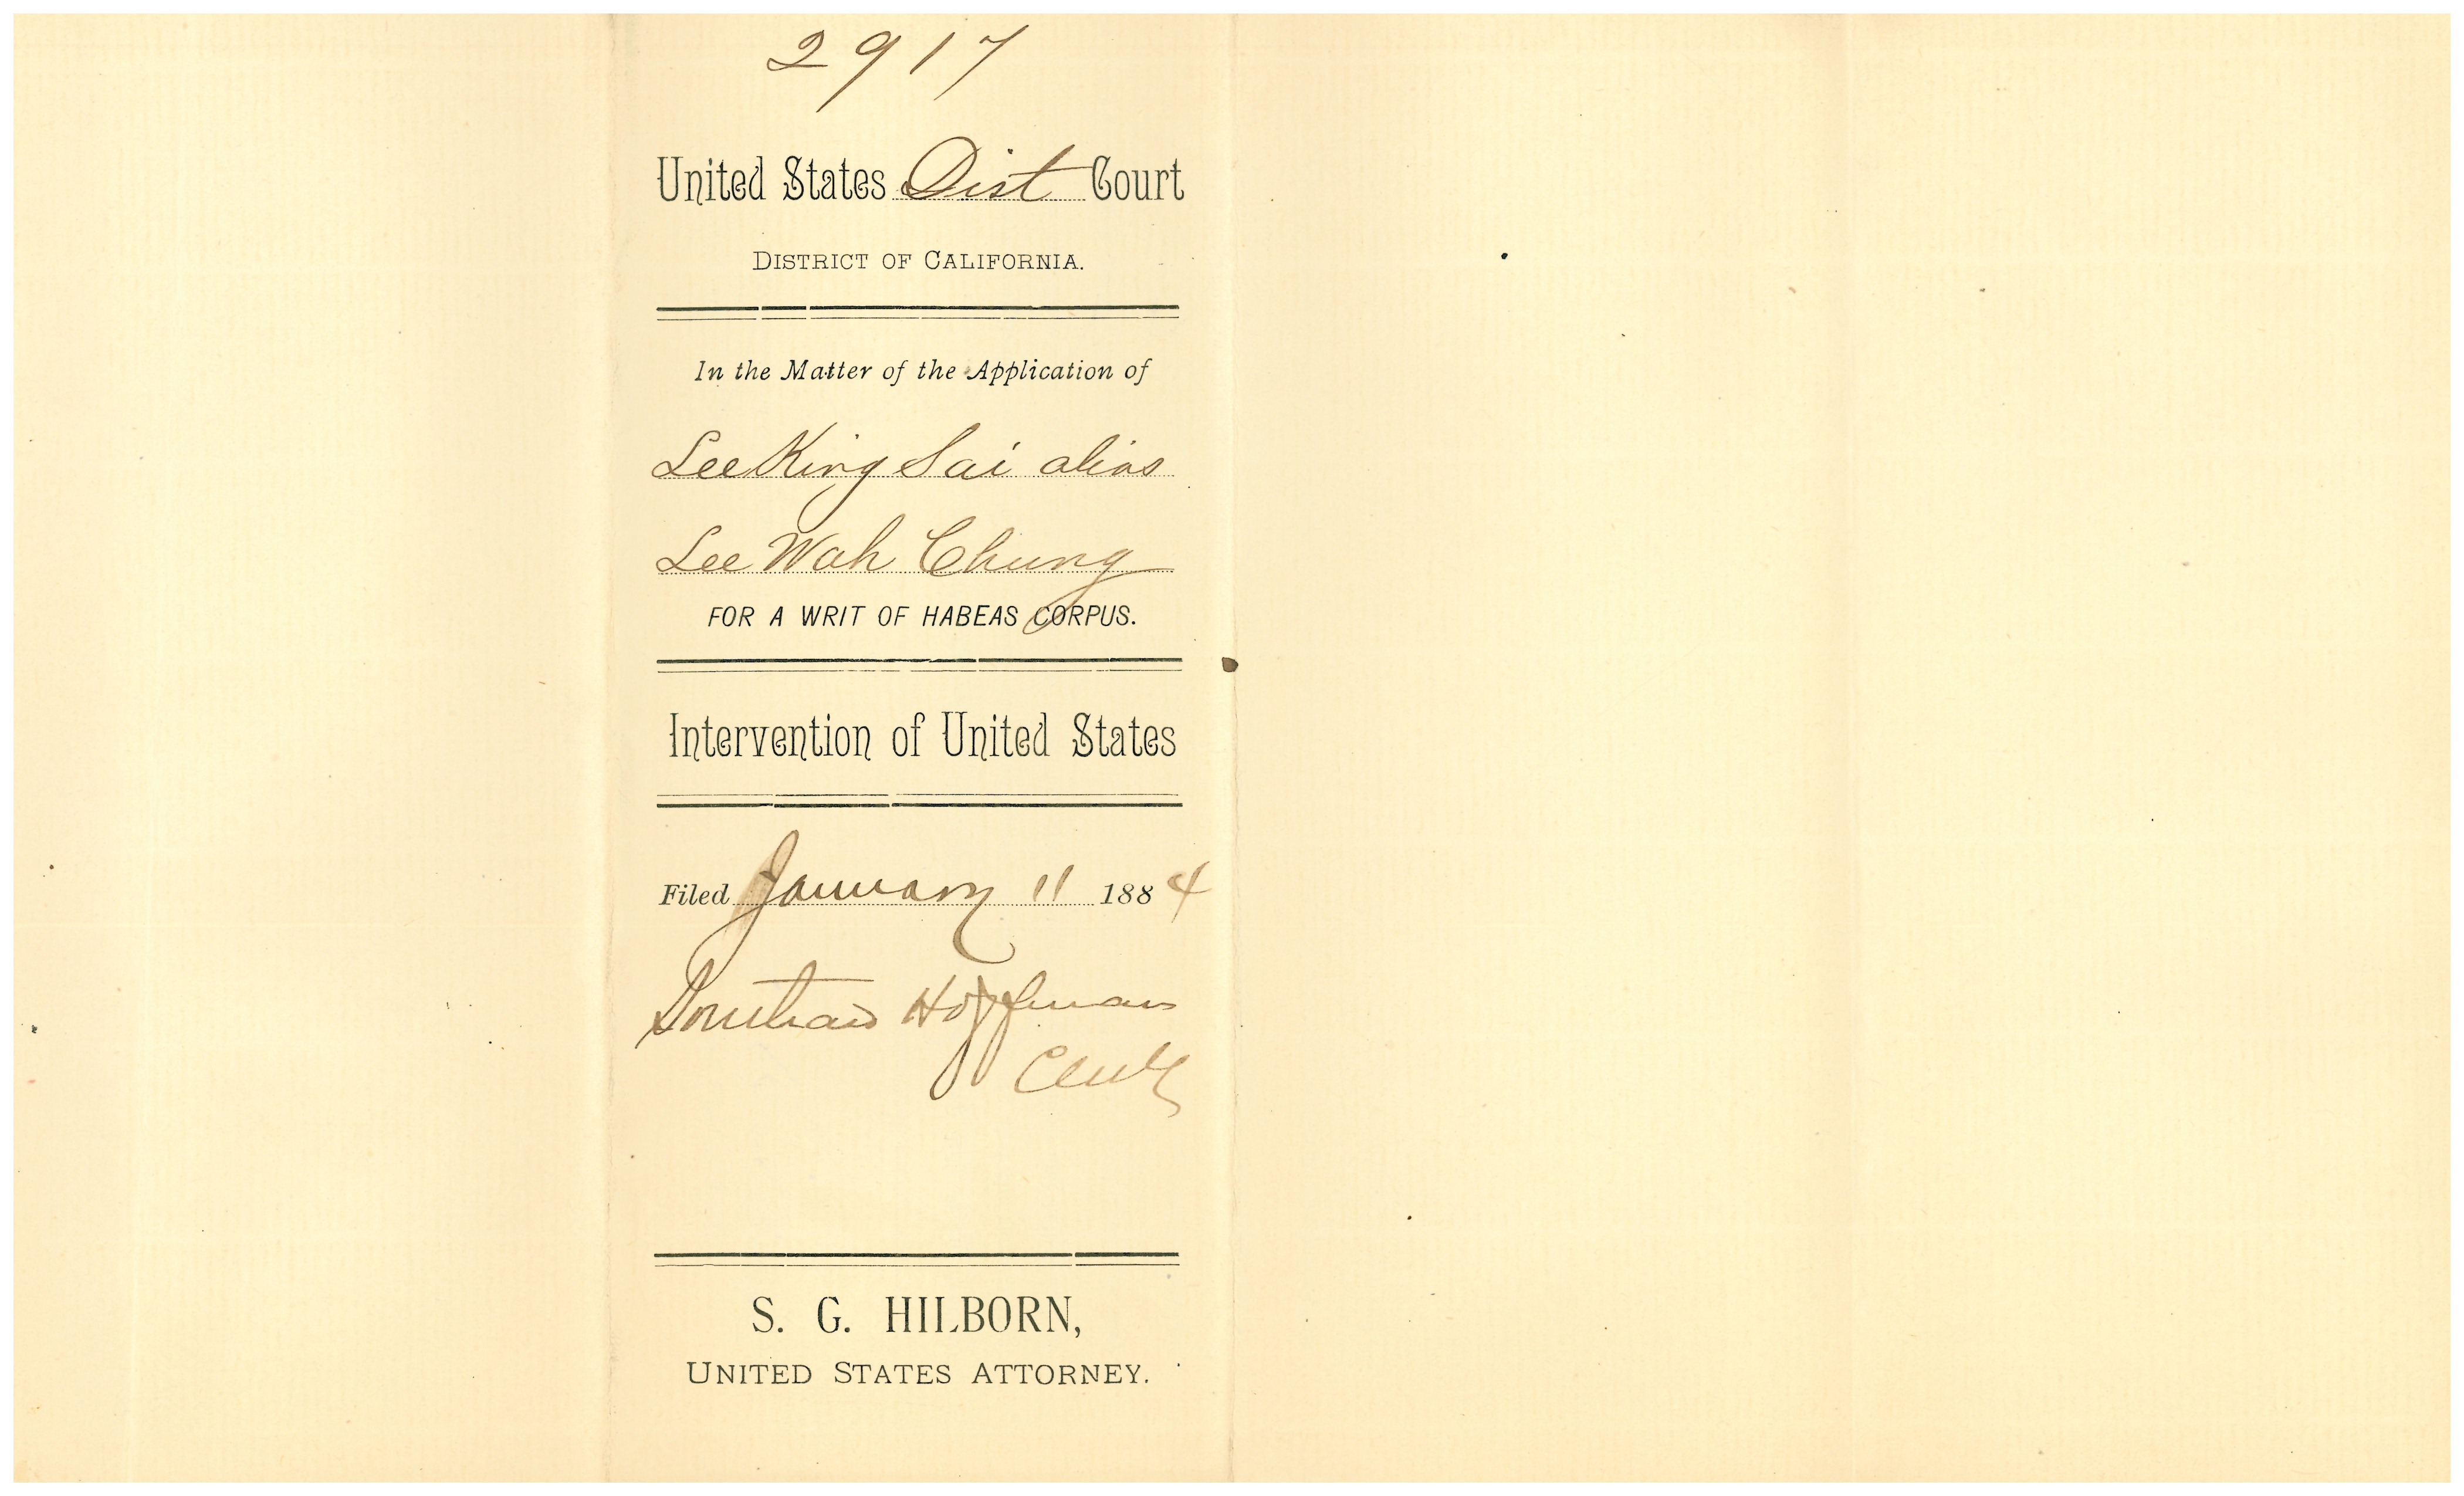 2917
United States Dist Court
DISTRICT OF CALIFORNIA.
In the Matter of the Application of
Lee King Sai alias
Lee Wah Chung
FOR A WRIT OF HABEAS CORPUS.
Intervention of United States
Filed January 11 1884
Southard Hoffman
Clerk
S. G. HILBORN,
UNITED STATES ATTORNEY.